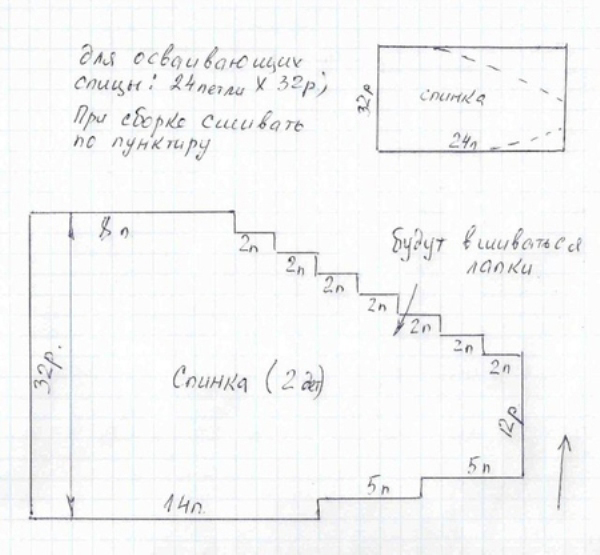 для осваивающих
спицы: 24 петли х 32р;
При сборке сшивать
по пунктиру
32р
спинка
24п
8п
2п
2п
2п
2п
2п
2п
2п
будут вшиваться
лапки
32р.
Спинка (2 дет)
12р
5п
5п
14п.